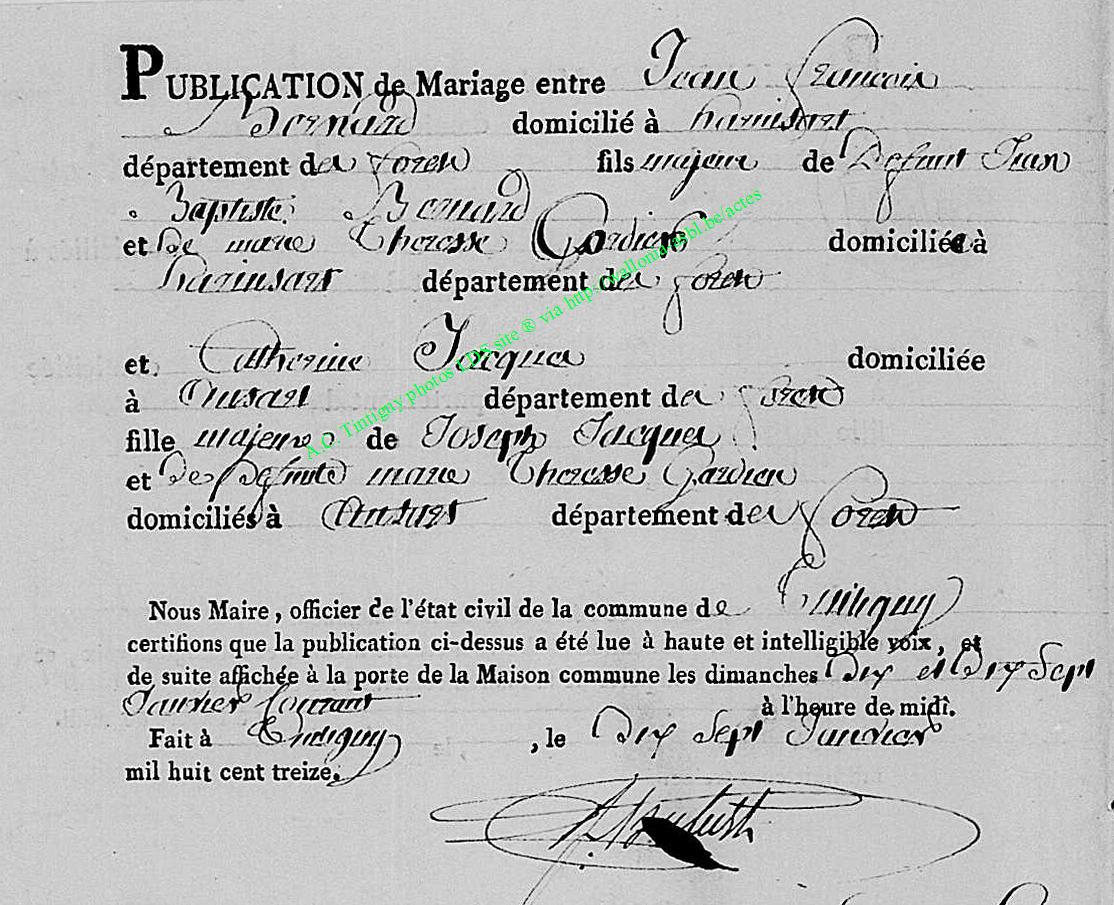 PUBLICATION de Mariage entre Jean francois
Bernard domicilié à hainsart
département des foret fils majeur de Defunt Jean
Baptiste Bernard
et De marie Theresse Gardien domiciliée à
hainsart département des foret
et Catherine Jacques domiciliée
à Ansart département des foret
fille majeure de Joseph Jacques
et de Defunte marie Theresse Gardien
domiciliés à Ansart département des foret
Nous Maire, officier de l'état civil de la commune de Tintigny
certifions que la publication ci-dessus a été lue à haute et intelligible voix, et
de suite affichée à la porte de la Maison commune les dimanches Dix et Dix Sept
Janvier Courant à l'heure de midi.
Fait à Tintigny, le Dix Sept Janvier
mil huit cent treize.
A.C. Tintigny photos site ® via http://wallonia-asbl.be/actes